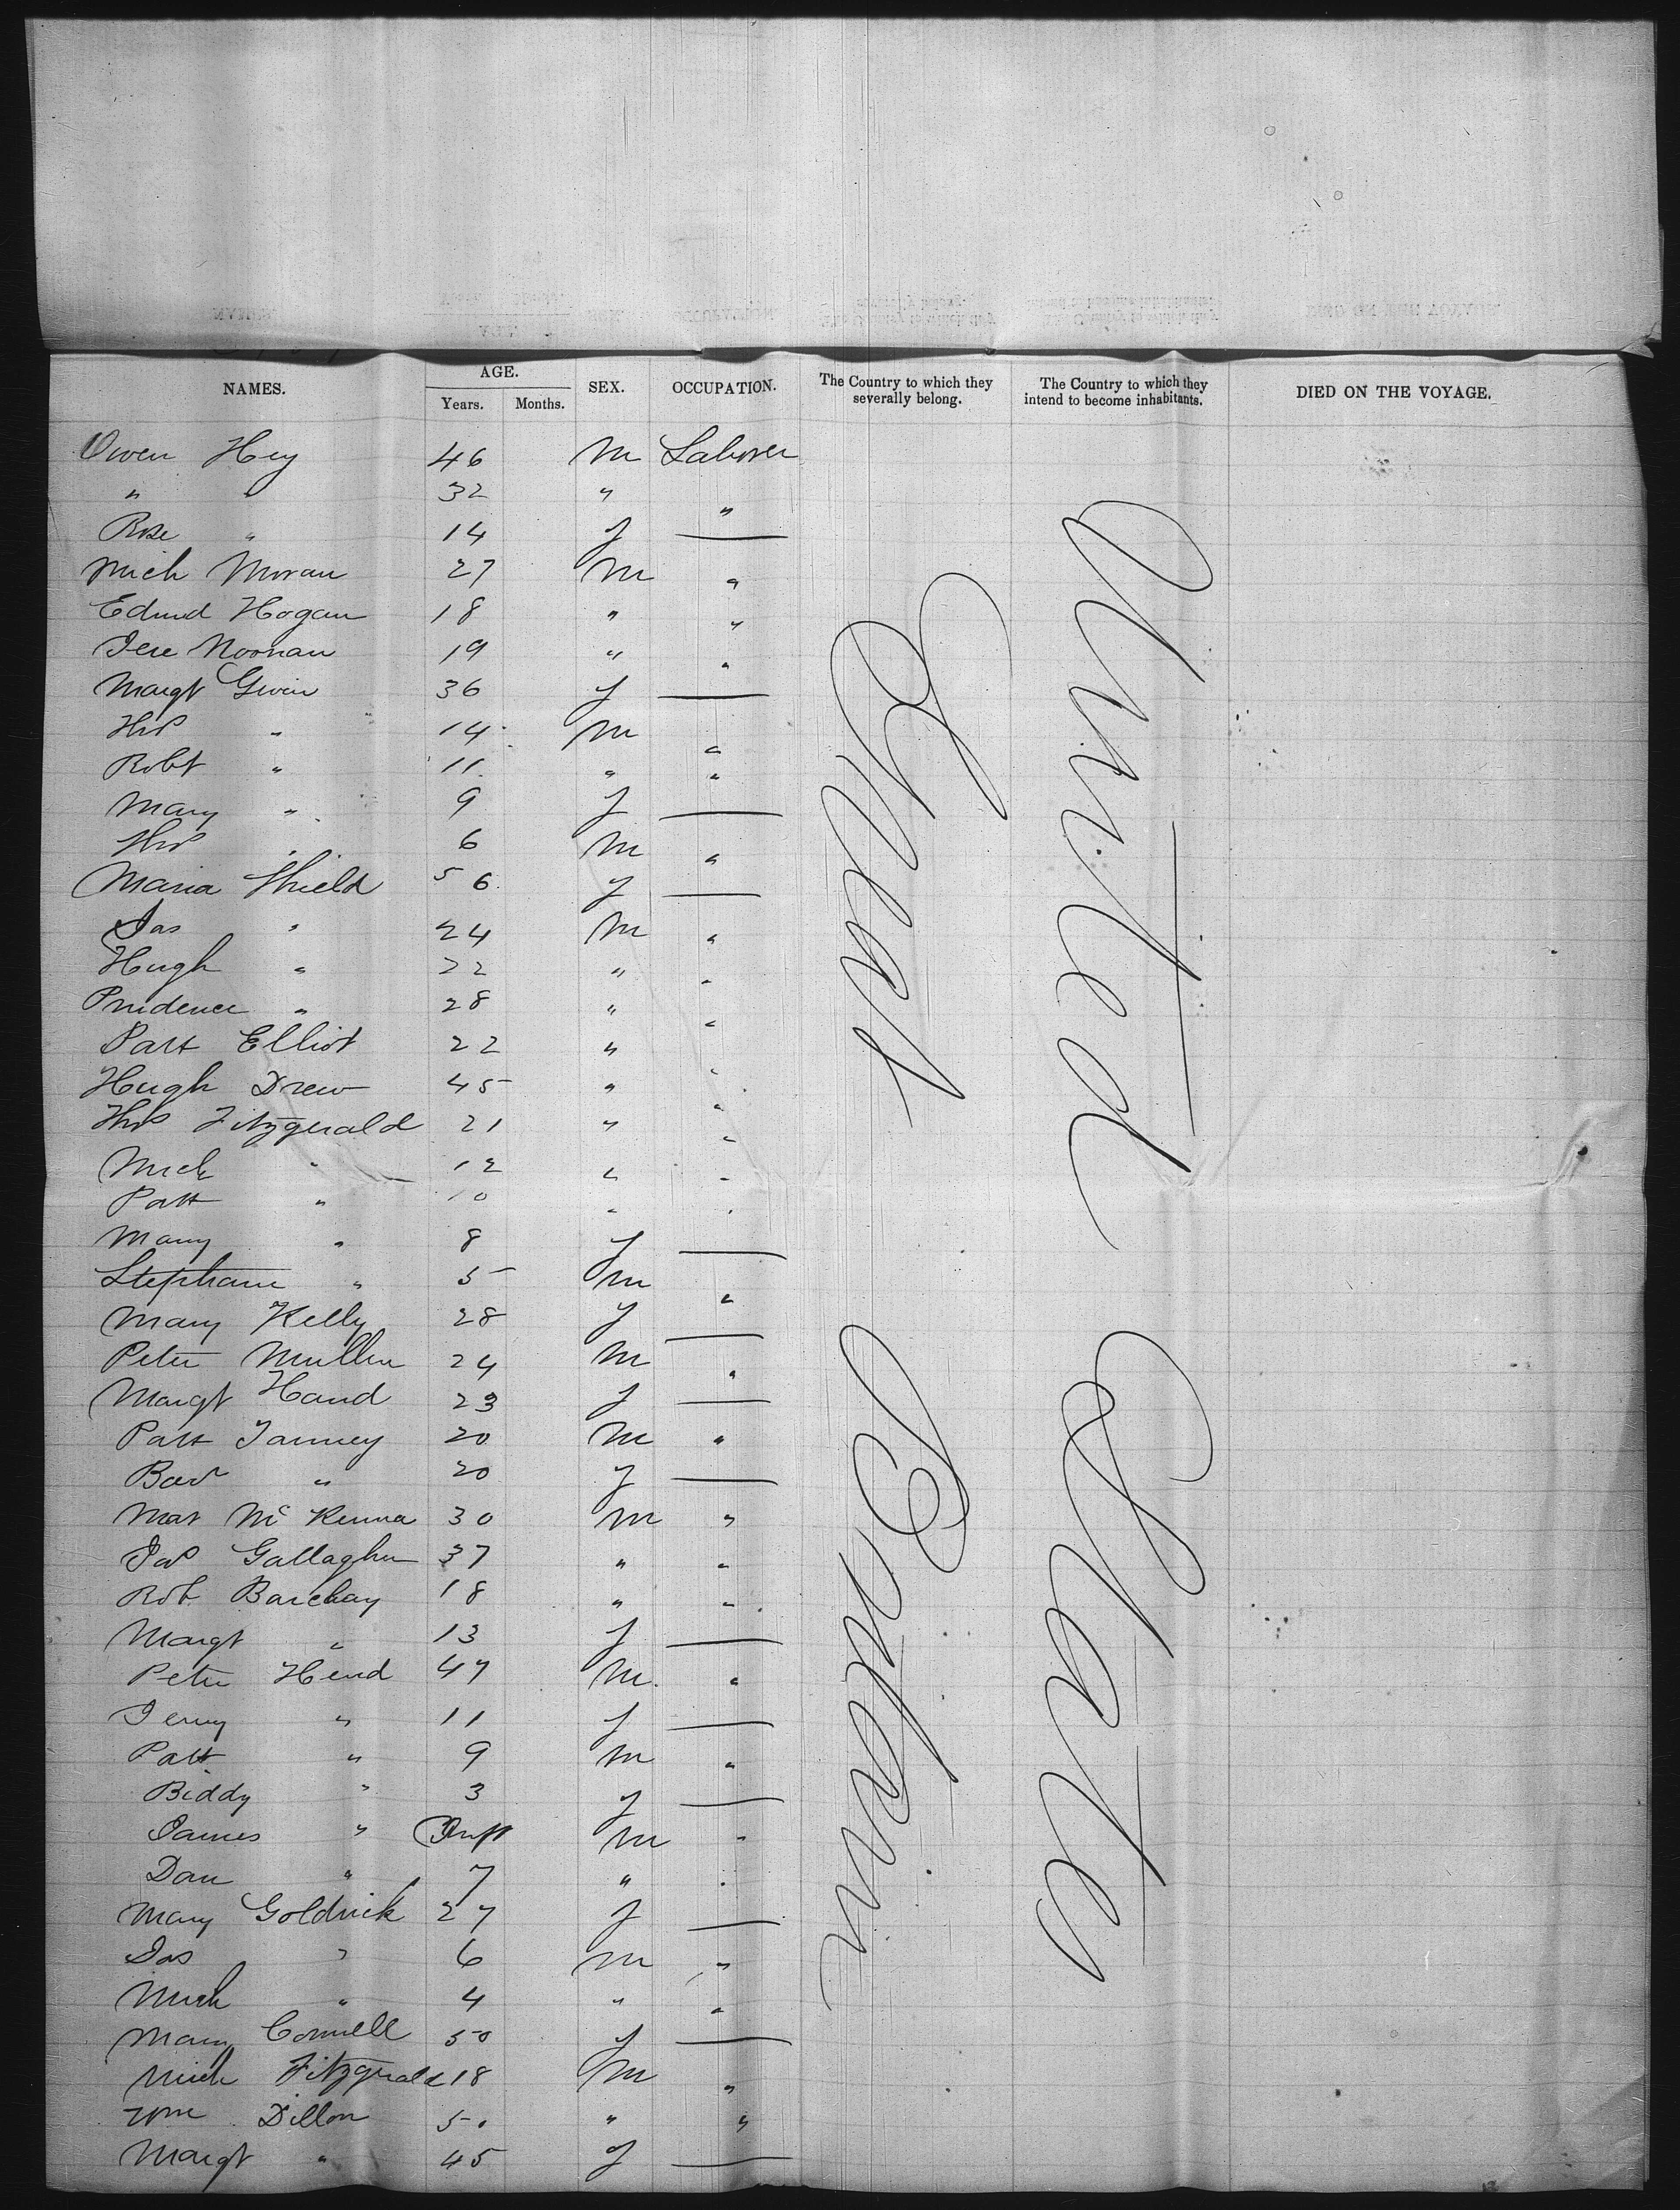 NAMES. AGE. SEX. OCCUPATION. The Country to which they severally belong. The Country to which they intend to become inhabitants. DIED ON THE VOYAGE.
Years. Months.
Owen Hey 46 M Laborer
" " 32 " "
Rose " 14 f —
Mich Moran 27 M "
Edmd Hogan 18 " "
Jere Noonan 19 " "
Margt Gwin 36 f —
Thos " 14 M "
Robt " 11 " "
Mary " 9 f —
Thos " 6 M "
Maria Shield 56 f —
Jas " 24 M "
Hugh " 22 " "
Prudence " 28 " "
Patt Elliot 22 " "
Hugh Drew 45 " "
Thos Fitzgerald 21 " "
Mich " 12 " "
Patt " 10 " "
Mary " 8 f —
Stepham " 5 M "
Mary Kelly 28 f —
Peter Mullen 24 M "
Margt Hand 23 f —
Patt Tanney 20 M "
" 20 f —
Mat McKenna 30 M "
Jas Gallagher 37 " "
Rob Barclay 18 " "
Margt " 13 f —
Peter Hend 47 M "
Jenny " 11 f —
Patt " 9 M "
Biddy " 3 f —
James " Inft M "
Dan " 7 " "
Mary Goldrick 27 f —
Jas " 6 M "
Mich " 4 " "
Mary Connell 50 f —
Mich Fitzgerald 18 M "
Wm Dillon 50 " "
Margt " 45 f —
Great Britain
United States